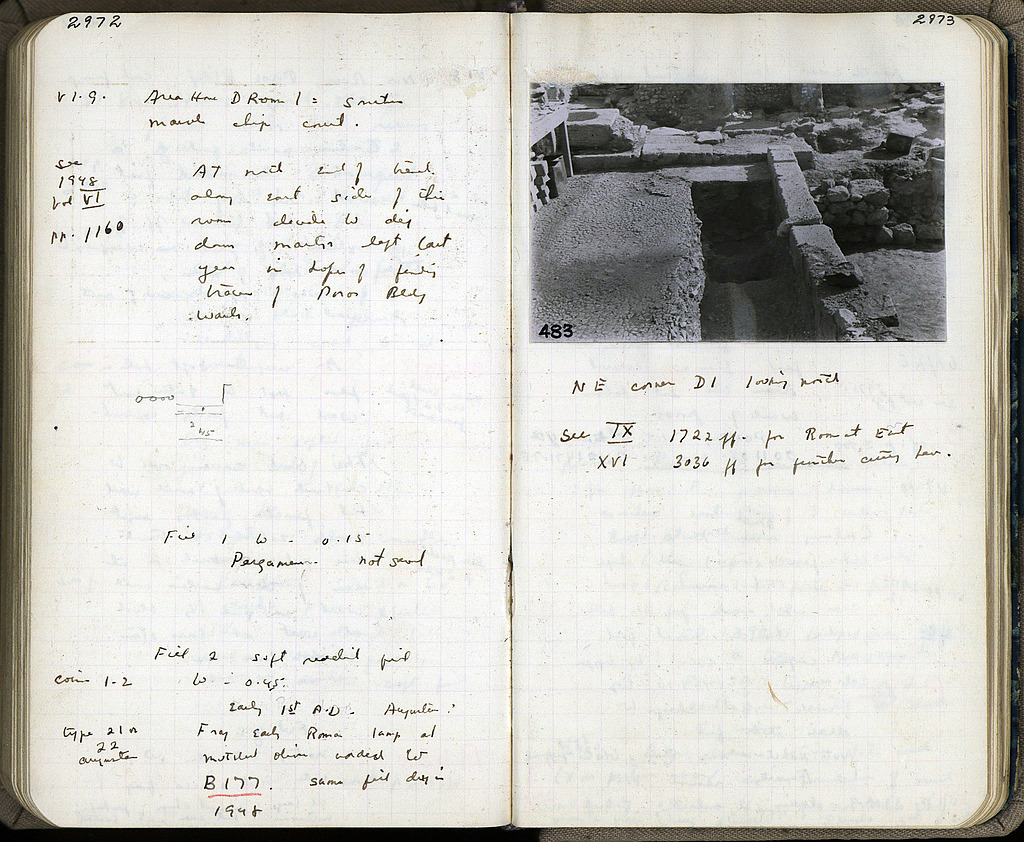 2972
VI.9. Area House D Room 1 = smitten
marble chip court.
see
1948
Vol VI
pp. 1160
AT north end of trench
along east side of this
room decide to dig
down martyr left last
year in hopes of finding
traces of Poros Bldg
walls.
Fill 1 W = 0.15
Pergamene. not saved
Fill 2 soft reddish fill
coins 1-2 W = 0.45.
Early 1st A.D. - Augustan?
type 21 or
22
augustan
Frag early Roman lamp and
mottled olive added to
B 177. same fill dug in
1948
2973
483
NE corner D1 looking north
See IX 1722 ff. for Room at East
XVI 3036 ff for further cutting here.